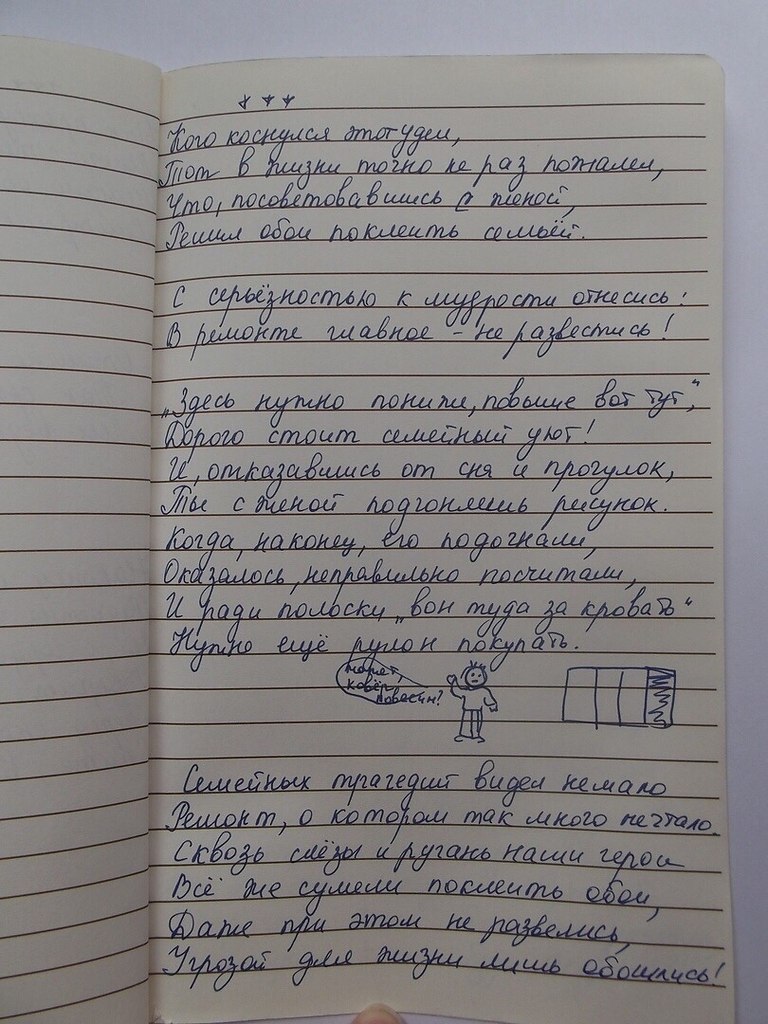 ***
Кого коснулся этот удел,
Тот в жизни точно не раз пожалел,
Что, посоветовавшись с женой,
Решил обои поклеить семьёй.
С серьёзностью к мудрости отнесись:
В ремонте главное - не развестись!
„Здесь нужно пониже, повыше вот тут",
Дорого стоит семейный уют!
И, отказавшись от сня и прогулок,
Ты с женой подгоняешь рисунок.
Когда, наконец, его подогнали,
Оказалось, неправильно посчитали,
И ради полоски „вон туда за кровать"
Нужно ещё рулон покупать.
Может,
ковёр
повесим?
Семейных трагедий видел немало
Ремонт, о котором так много мечтало.
Сквозь слёзы и ругань наши герои
Всё же сумели поклеить обои,
Даже при этом не развелись,
Угрозой для жизни лишь обошлись!